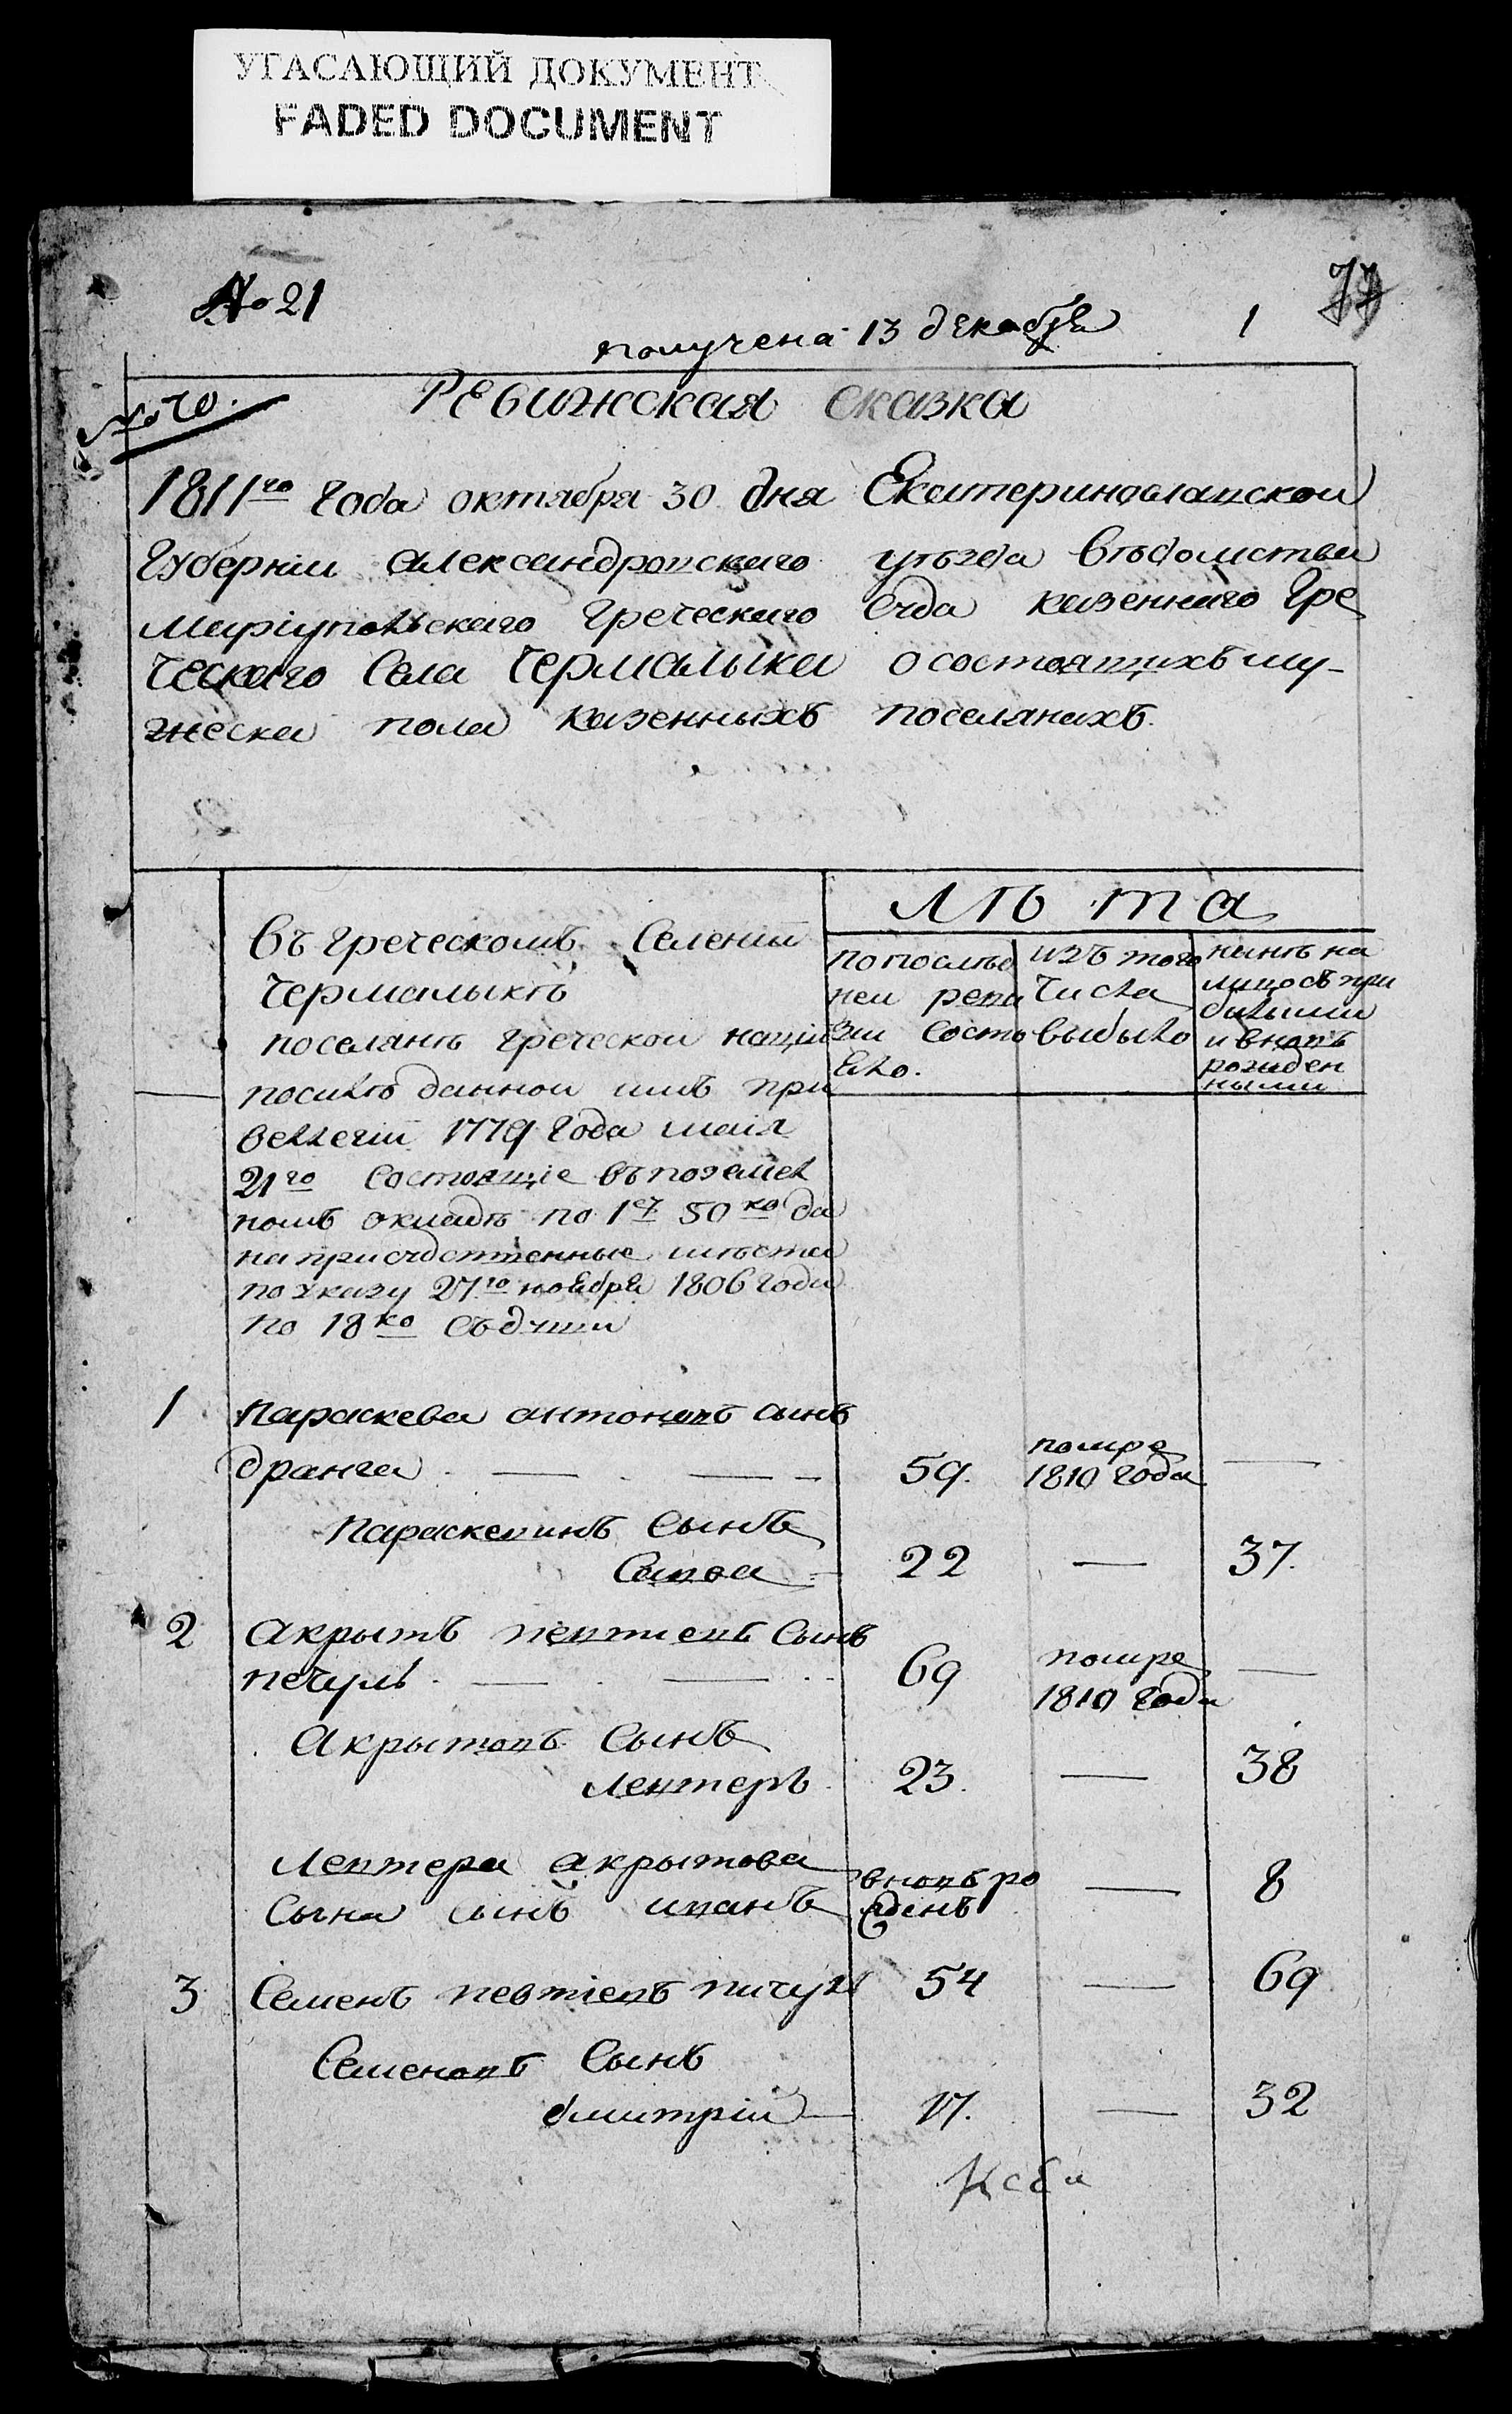 УГАСАЮЩИЙ ДОКУМЕНТ
FADED DOCUMENT
№ 21
77
получена 13 декабря
1
№ 70.
Ревижская сказка
1811го года октября 30 дня Екатеринославской
Губернiи Александровскаго уѣзда вѣдомства
Марiупольскаго Греческаго Суда казеннаго Гре
ческаго Села Чермалыка о состоящихъ му-
жеска пола казенныхъ поселянахъ.
Лѣта
въ Греческомъ Селенiи
Чермалыкѣ
поселянъ Греческой нацiи
посилѣ данной имъ при
веллегiи 1779 Года маiя
21го состоящiе въ поземел
номъ окладѣ по 1 50 ко да
на присудственные мѣста
по указу 27го ноября 1806 года
по 18 ко съ души
по послѣд
ней реви
зiи состо
яло.
изъ того
числа
выбыло
нынѣ на
лицо съ при
былыми
и вновь
рожден
ными
1 Параскева Антоновъ сынъ
Дранга 59. помре 1810 Года —
Параскевинъ Сынъ
Савва 22 — 37.
2 Акрытъ Певтиевъ Сынъ
Печуль 69 помре 1810 Года —
Акрытовъ Сынъ
Левтеръ 23. — 38
Левтера Акрытова
Сына сынъ Иванъ вновь ро жденъ — 8
3 Семенъ Певтiевъ Пичул 54 — 69
Семеновъ Сынъ
Дмитрiй 17. — 32